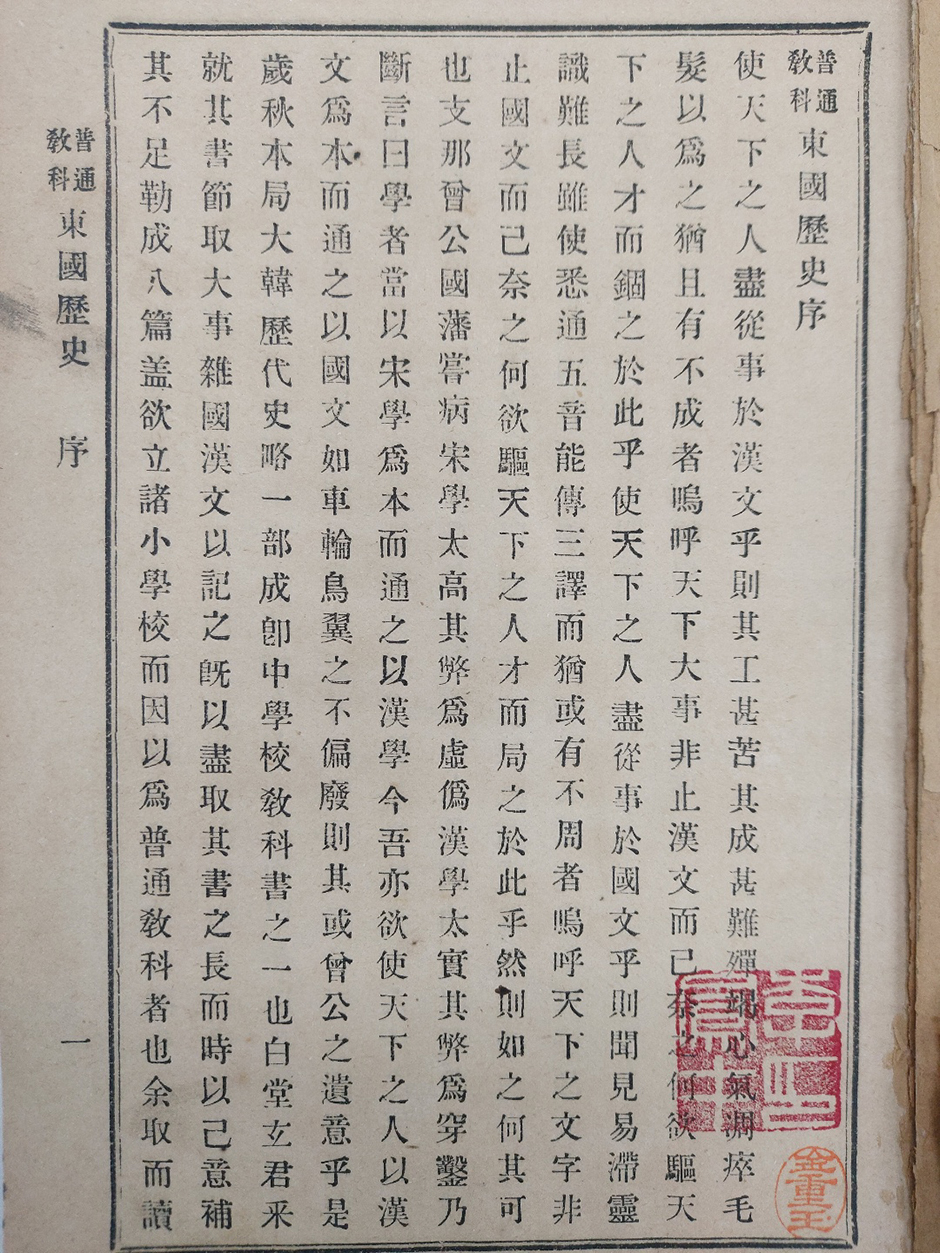 普通敎科東國歷史序
使天下之人盡從事於漢文乎則其工甚苦其成甚難殫竭心氣凋瘁毛
髮以爲之猶且有不成者嗚呼天下大事非止漢文而已奈之何欲驅天
下之人才而錮之於此乎使天下之人盡從事於國文乎則聞見易滯靈
識難長雖使悉通五音能傳三譯而猶或有不周者嗚呼天下之文字非
止國文而已奈之何欲驅天下之人才而局之於此乎然則如之何其可
也支那曾公國藩嘗病宋學太高其弊爲虛僞漢學太實其弊爲穿鑿乃
斷言曰學者當以宋學爲本而通之以漢學今吾亦欲使天下之人以漢
文爲本而通之以國文如車輪鳥翼之不偏廢則其或曾公之遺意乎是
歲秋本局大韓歷代史略一部成卽中學校敎科書之一也白堂玄君采
就其書節取大事雜國漢文以記之旣以盡取其書之長而時以己意補
其不足勒成八篇盖欲立諸小學校而因以爲普通敎科者也余取而讀
普通敎科東國歷史 序 一
金重玉